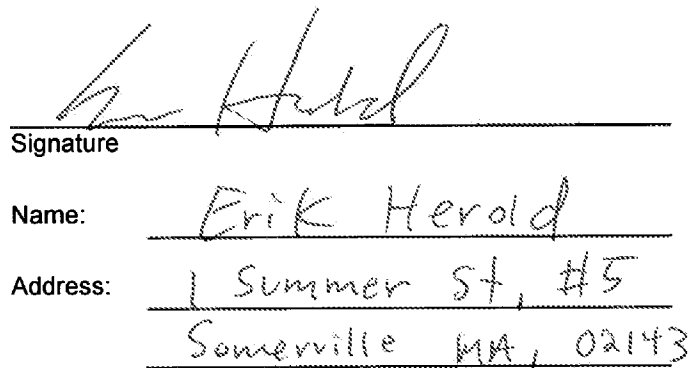 Signature
Name: Erik Herold
Address: 1 Summer St, #5
Somerville MA, 02143